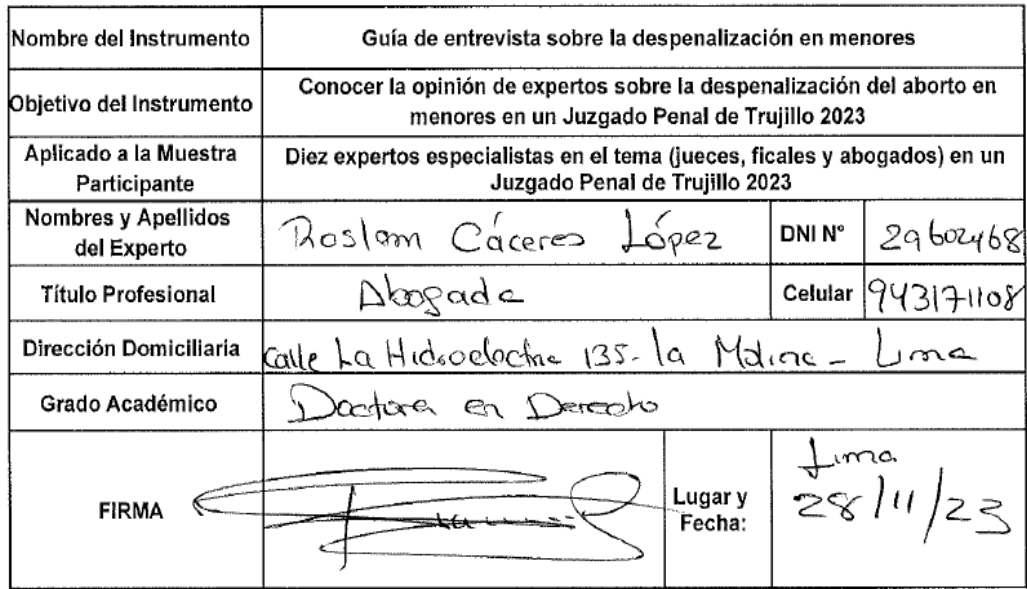 Nombre del Instrumento
Guía de entrevista sobre la despenalización en menores
Objetivo del Instrumento
Conocer la opinión de expertos sobre la despenalización del aborto en
menores en un Juzgado Penal de Trujillo 2023
Aplicado a la Muestra
Participante
Diez expertos especialistas en el tema (jueces, ficales y abogados) en un
Juzgado Penal de Trujillo 2023
Nombres y Apellidos
del Experto
Roslam Cáceres López
DNI N°
29602468
Título Profesional
Abogada
Celular
943171108
Dirección Domiciliaria
Calle La Hidroelectric 135- la Molina - Lima
Grado Académico
Doctora en Derecho
FIRMA
Lugar y
Fecha:
Lima
28/11/23